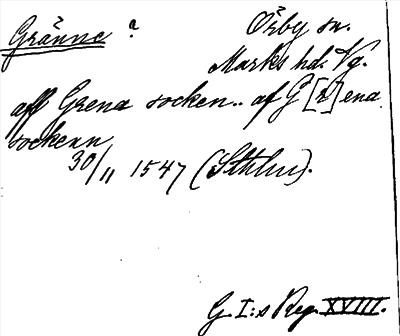 Gränne ? Örby sn.
Marks hd. Vg.
aff Grena socken.. af G[r]ena
sockenn
30/11 1547 (Sthlm).
G. I:s Reg. XVIII.